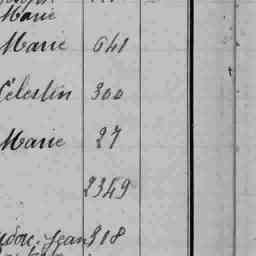 Marie
Marie 641
Célestin 300
Marie 27
2349
Jean 318